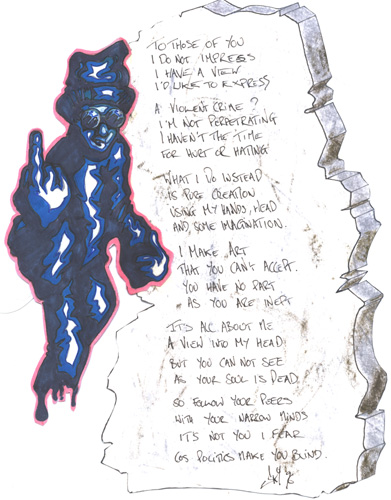 TO THOSE OF YOU
I DO NOT IMPRESS
I HAVE A VIEW
I'D LIKE TO EXPRESS
A VIOLENT CRIME?
I'M NOT PERPETRATING
I HAVEN'T THE TIME
FOR HURT OR HATING
WHAT I DO INSTEAD
IS PURE CREATION
USING MY HANDS, HEAD
AND, SOME IMAGINATION.
I MAKE ART
THAT YOU CAN'T ACCEPT.
YOU HAVE NO PART
AS YOU ARE INEPT
IT'S ALL ABOUT ME
A VIEW INTO MY HEAD
BUT YOU CAN NOT SEE
AS YOUR SOUL IS DEAD.
SO FOLLOW YOUR PEERS
WITH YOUR NARROW MINDS
IT'S NOT YOU I FEAR
COS POLITICS MAKE YOU BLIND.